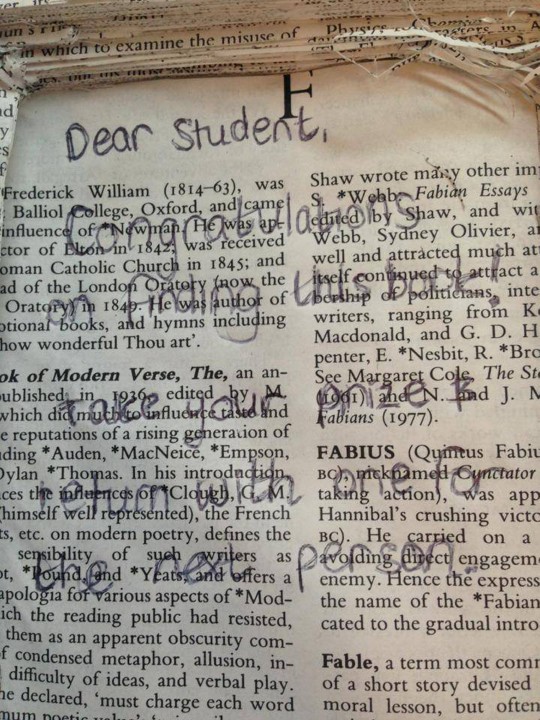 in which to examine the misuse of
F
Dear Student,
Congratulations
on finding this book!
Take your prize &
return with one for
the next person.
Frederick William (1814–63), was
Balliol College, Oxford, and came
influence of *Newman. He was ap-
ctor of Elton in 1842, was received
oman Catholic Church in 1845; and
ad of the London Oratory (now the
Oratory) in 1849. He was author of
otional books, and hymns including
how wonderful Thou art'.
ok of Modern Verse, The, an an-
ublished in 1936, edited by M.
which did much to influence taste and
e reputations of a rising generation of
ding *Auden, *MacNeice, *Empson,
Dylan *Thomas. In his introduction,
ces the influences of *Clough, G. M.
(himself well represented), the French
ts, etc. on modern poetry, defines the
sensibility of such writers as
ot, *Pound, and *Yeats, and offers a
apologia for various aspects of *Mod-
ich the reading public had resisted,
them as an apparent obscurity com-
f condensed metaphor, allusion, in-
difficulty of ideas, and verbal play.
he declared, 'must charge each word
Shaw wrote many other im
S. *Webb. Fabian Essays
edited by Shaw, and wit
Webb, Sydney Olivier, a
well and attracted much att
itself continued to attract a
bership of politicians, inte
writers, ranging from K
Macdonald, and G. D. H
penter, E. *Nesbit, R. *Bro
See Margaret Cole, The Sto
(1961) and N. and J. M
Fabians (1977).
FABIUS (Quintus Fabiu
BC), nicknamed Cunctator
taking action), was app
Hannibal's crushing victo
BC). He carried on a
avoiding direct engagem
enemy. Hence the express
the name of the *Fabian
cated to the gradual intro
Fable, a term most comm
of a short story devised
moral lesson, but often